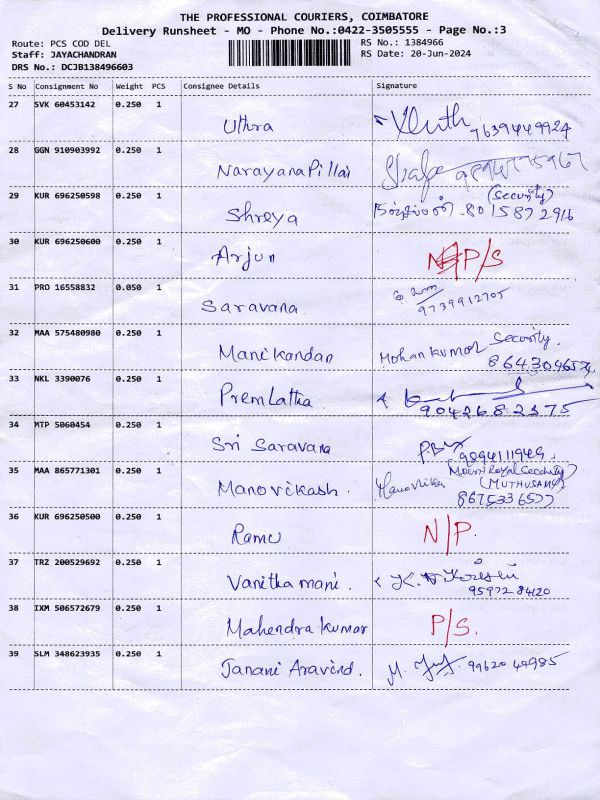 THE PROFESSIONAL COURIERS, COIMBATORE
Delivery Runsheet - MO - Phone No.:0422-3505555 - Page No.:3
Route: PCS COD DEL
RS No.: 1384966
Staff: JAYACHANDRAN
RS Date: 20-Jun-2024
DRS No.: DCJB138496603
S No Consignment No Weight PCS Consignee Details Signature
27 SVK 60453142 0.250 1
Uthra 7639449924
28 GGN 910903992 0.250 1
Narayana Pillai
29 KUR 696250598 0.250 1
(Security)
Shreya 8015872916
30 KUR 696250600 0.250 1
Arjun P/S
31 PRO 16558832 0.050 1
Saravana 9739912705
32 MAA 575480980 0.250 1
Manikandan Mohan kumar Security.
33 NKL 3390076 0.250 1
Premlatha 9042682375
34 MTP 5060454 0.250 1
Sri Saravana 9894111949
35 MAA 865771301 0.250 1
Manovikash. Royal Security
(MUTHUSAMY)
8675336577
36 KUR 696250500 0.250 1
Ramu N/P.
37 TRZ 200529692 0.250 1
Vanitha mani.
9597284120
38 IXM 506572679 0.250 1
Mahendra kumar P/S.
39 SLM 348623935 0.250 1
Janani Aravind. 9962049985